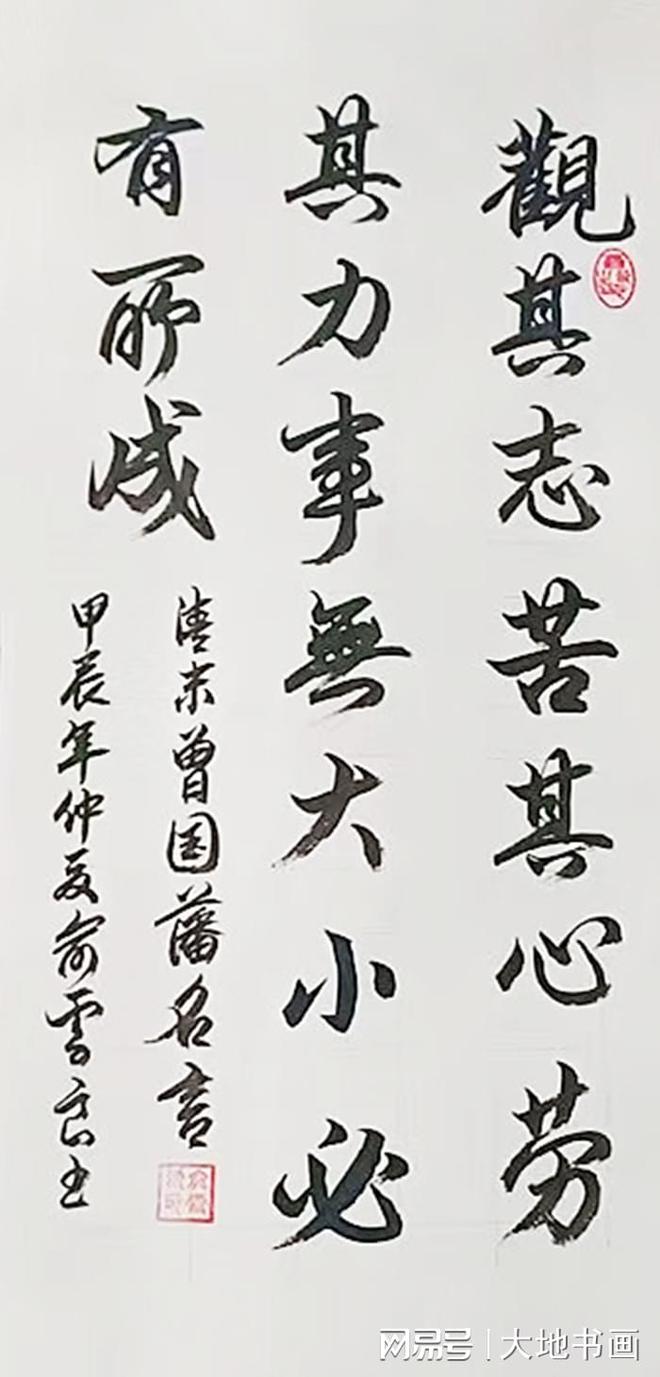 觀其志苦其心劳
其力事無大小必
有所成
清末曾国藩名言
甲辰年仲夏俞雪良书
网易号 | 大地书画